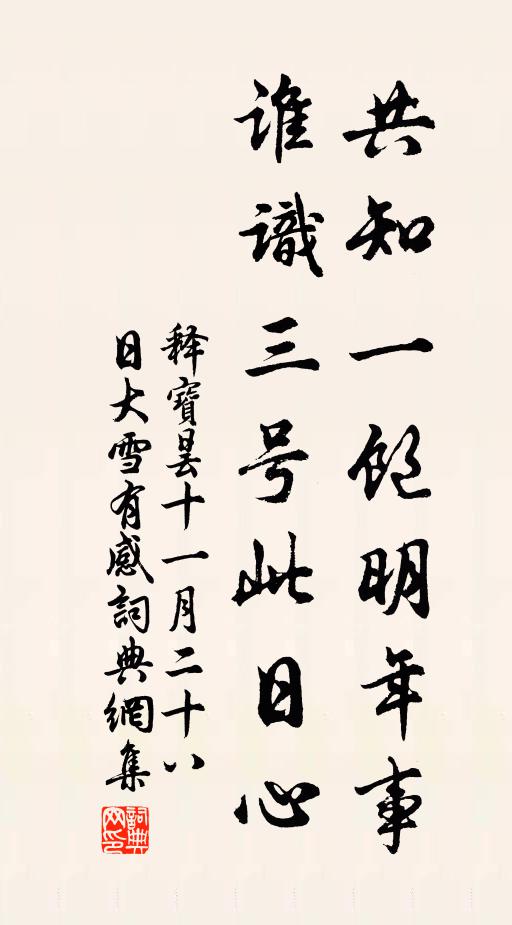 共知一飽明年事
誰識三号此日心
釋寶曇十一月二十八
日大雪有感詞典網集
詞典
网印